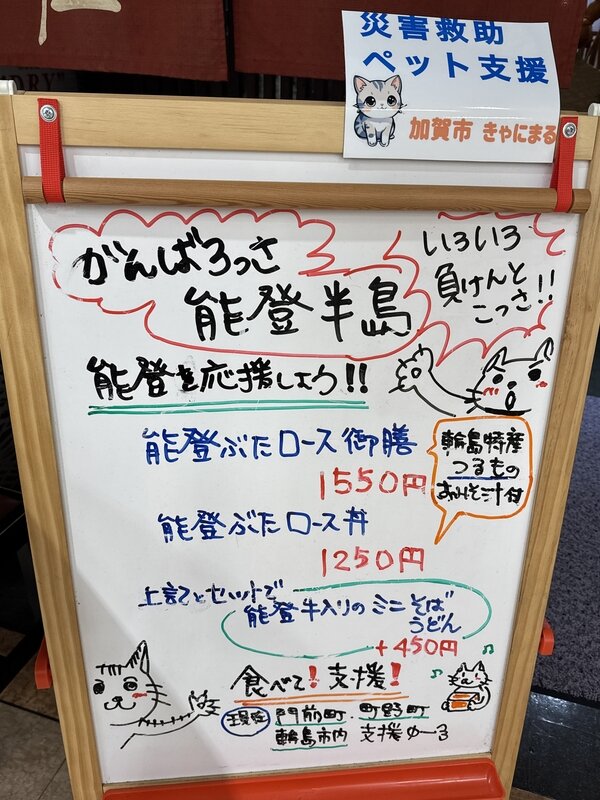 災害救助
ペット支援
加賀市 きゃにまる
がんばろっさ
能登半島
いろいろ
負けんと
こっさ!!
能登を応援しよう!!
能登ぶたロース御膳
1550円
輪島特産
つるもの
おみそ汁付
能登ぶたロース丼
1250円
上記とセットで
能登牛入りのミニそば
うどん
+450円
食べて!支援!
現在 門前町・町野町
輪島市内 支援中〜3